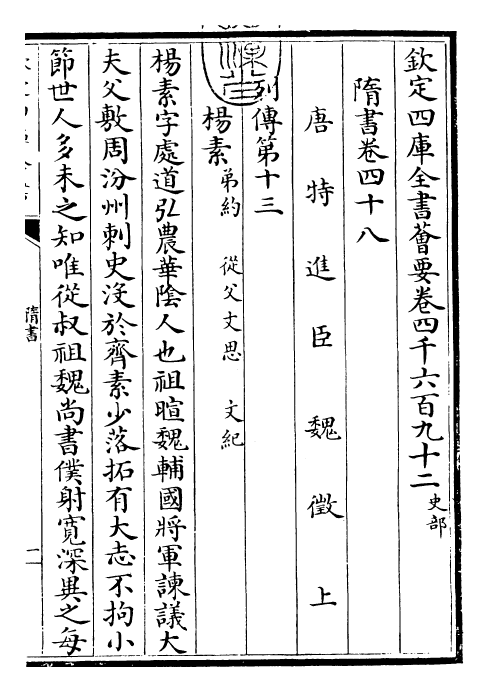 欽定四庫全書薈要卷四千六百九十二 史部
隋書卷四十八
唐特進臣魏徵上
列傳第十三
楊素 弟約 從父文思 文紀
楊素字處道弘農華陰人也祖暄魏輔國將軍諫議大
夫父敷周汾州刺史沒於齊素少落拓有大志不拘小
節世人多未之知唯從叔祖魏尚書僕射寬深異之每
隋書
一